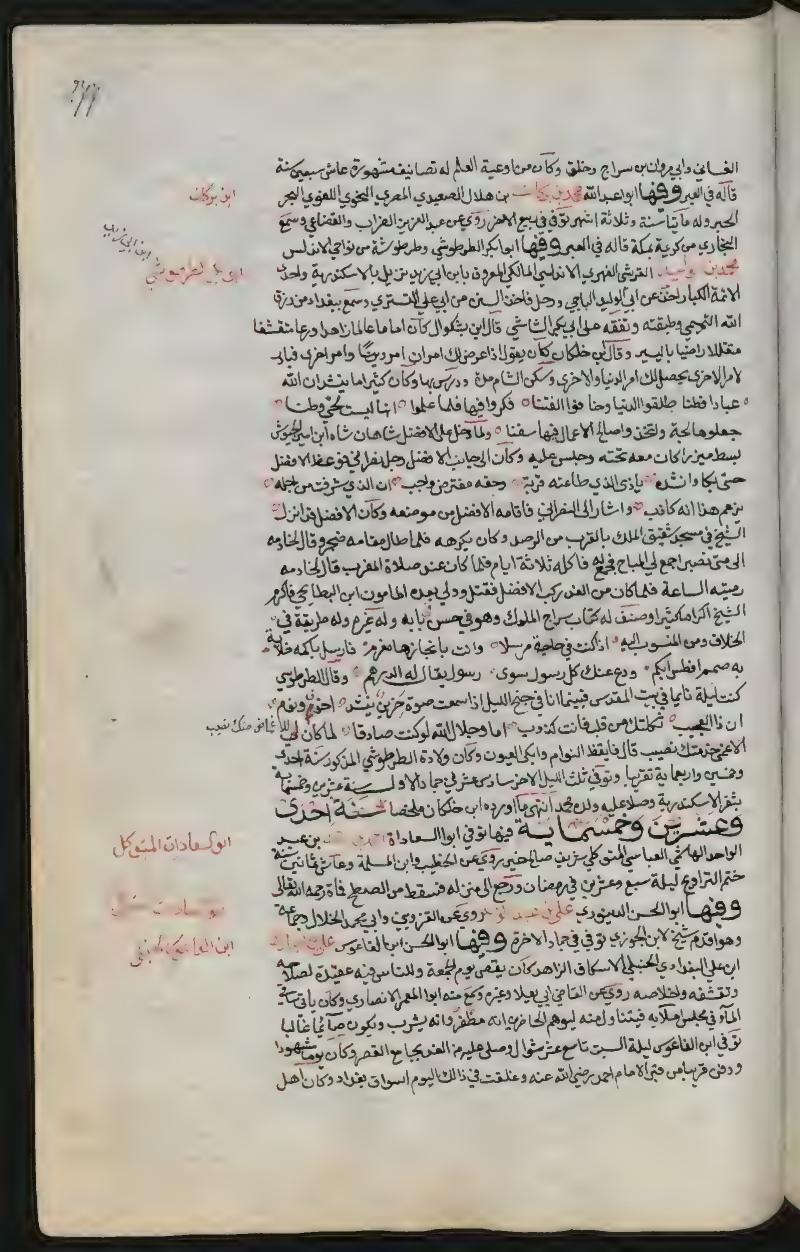 ٢٧٧
الغساني وابي مروان بن سراج وخلق وكان من اوعية العلم له تصانيف مشهورة عاش سبعين سنة
قاله في العبر وفيها ابو عبد الله محمد بن بركات بن هلال الصعيدي المصري النحوي اللغوي البحر
ابن بركات
الحبر وله مائة سنة وثلاثة اشهر توفي في ربيع الاخر روى عن عبد العزيز الضراب والقضاعي وسمع
البخاري من كريمة بمكة قاله في العبر وفيها ابو بكر الطرطوشي وطرطوشة من نواحي الاندلس
ابن ابي رندقة
ابو بكر الطرطوشي
محمد بن وليد القرشي الفهري الاندلسي المالكي المعروف بابن ابي زيد نزيل بالاسكندرية واحد
الائمة الكبار اخذ عن ابي الوليد الباجي ورحل فاخذ السنن من ابي علي التستري وسمع ببغداد من رزق
الله التميمي وطبقته وتفقه على ابي بكر الشاشي قال ابن بشكوال كان اماما عالما زاهدا ورعا متقشفا
متقللا راضيا باليسير وقال ابن خلكان كان يقول اذا عرض لك امران امر دنيا وامر اخرى فبادر
لامر الاخرى يحصل لك امر الدنيا والاخرى وسكن الشام مدة ودرس بها وكان كثيرا ما ينشد ان لله
عبادا فطنا طلقوا الدنيا وخافوا الفتنا فكروا فيها فلما علموا انها ليست لحي وطنا
جعلوها لجة واتخذوا صالح الاعمال فيها سفنا ولما دخل على الافضل شاهان شاه ابن امير الجيوش
بسط ميزرا كان معه تحته وجلس عليه وكان الى جانب الافضل رجل نصراني فوعظ الافضل
حتى بكا وانشده ياذى الذي طاعته قربة وحقه مفترض واجب ان الذي شرفت من اجله
يزعم هذا انه كاذب واشار الى النصراني فاقامه الافضل من موضعه وكان الافضل قد انزل
الشيخ في مسجد شقيق الملك بالقرب من الرصد وكان يكرهه فلما طال مقامه ضجر وقال لخادمه
الى متى نصبر اجمع لي المباح فجمع له فاكله ثلاثة ايام فلما كان عند صلاة المغرب قال لخادمه
رميته الساعة فلما كان من الغد ركب الافضل فقتل وولي بعده المامون ابن البطايحي فاكرم
الشيخ اكراما كثيرا وصنف له كتاب سراج الملوك وهو في حسن بابه وله غيره وله طريقة في
الخلاف ومن المنسوب اليه اذا كنت في حاجة مرسلا وانت بانجازها مغرم فارسل باكمه خلابة
به صمم افطس ابكم ودع عنك كل رسول سوى رسول يقال له الدرهم وقال الطرطوشي
كنت ليلة نايما في بيت المقدس فبينما انا في جنح الليل اذا سمعت صوت حزين ينشد اخوف ونوم
ان ذا لعجيب ثكلتك من قلب فانت كذوب اما وجلال الله لو كنت صادقا لما كان لي
الاغماض منك نصيب قال فايقظ النوام وابكى العيون وكان ولادة الطرطوشي المذكور سنة احدى
وخمسين واربعماية تقريبا وتوفي ثلث الليل الاخر سادس عشرين جماد الاولى سنة عشرين وخمسماية
بثغر الاسكندرية وصلا عليه ولده محمد انتهى ما اورده ابن خلكان ملخصا سنة احدى
وعشرين وخمسماية فيها توفي ابو السعادات احمد بن احمد بن عبد
ابو السعادات المتوكلي
الواحد الهاشمي العباسي المتوكلي شريف صالح خير روى عن الخطيب وابن المسلمة وعاش ثمانين سنة
ختم التراويح ليلة سبع وعشرين في رمضان ورجع الى منزله فسقط من السطح فمات رحمه الله تعالى
وفيها ابو الحسن الدينوري علي بن عبد الواحد روى عن القزويني وابي محمد الخلال وجماعة
وهو اقدم شيخ لابن الجوزي توفي في جماد الاخرة وفيها ابو الحسن ابن الفاعوس علي بن المبارك
ابن الفاعوس الحنبلي
ابن علي البغدادي الحنبلي الاسكاف الزاهد كان يقص يوم الجمعة وللناس فيه عقيدة لصلاحه
وتقشفه واخلاصه روى عن القاضي ابي يعلا وغيره وسمع منه ابو المعمر الانصاري وكان ياتي ساقي
الماء في مجلس املائه فيتناول منه ليوهم الحاضرين انه مفطر وانه يشرب ويكون صائما غالبا
توفي ابن الفاعوس ليلة السبت تاسع عشر شوال وصلى عليه من الغد بجامع القصر وكان يوما مشهودا
ودفن قريبا من قبر الامام احمد رضي الله عنه وغلقت في ذلك اليوم اسواق بغداد وكان اهل